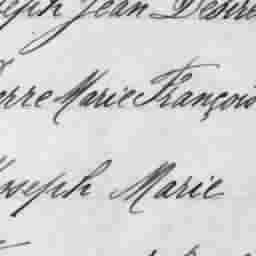 Joseph Jean Désiré
Pierre Marie François
Joseph Marie